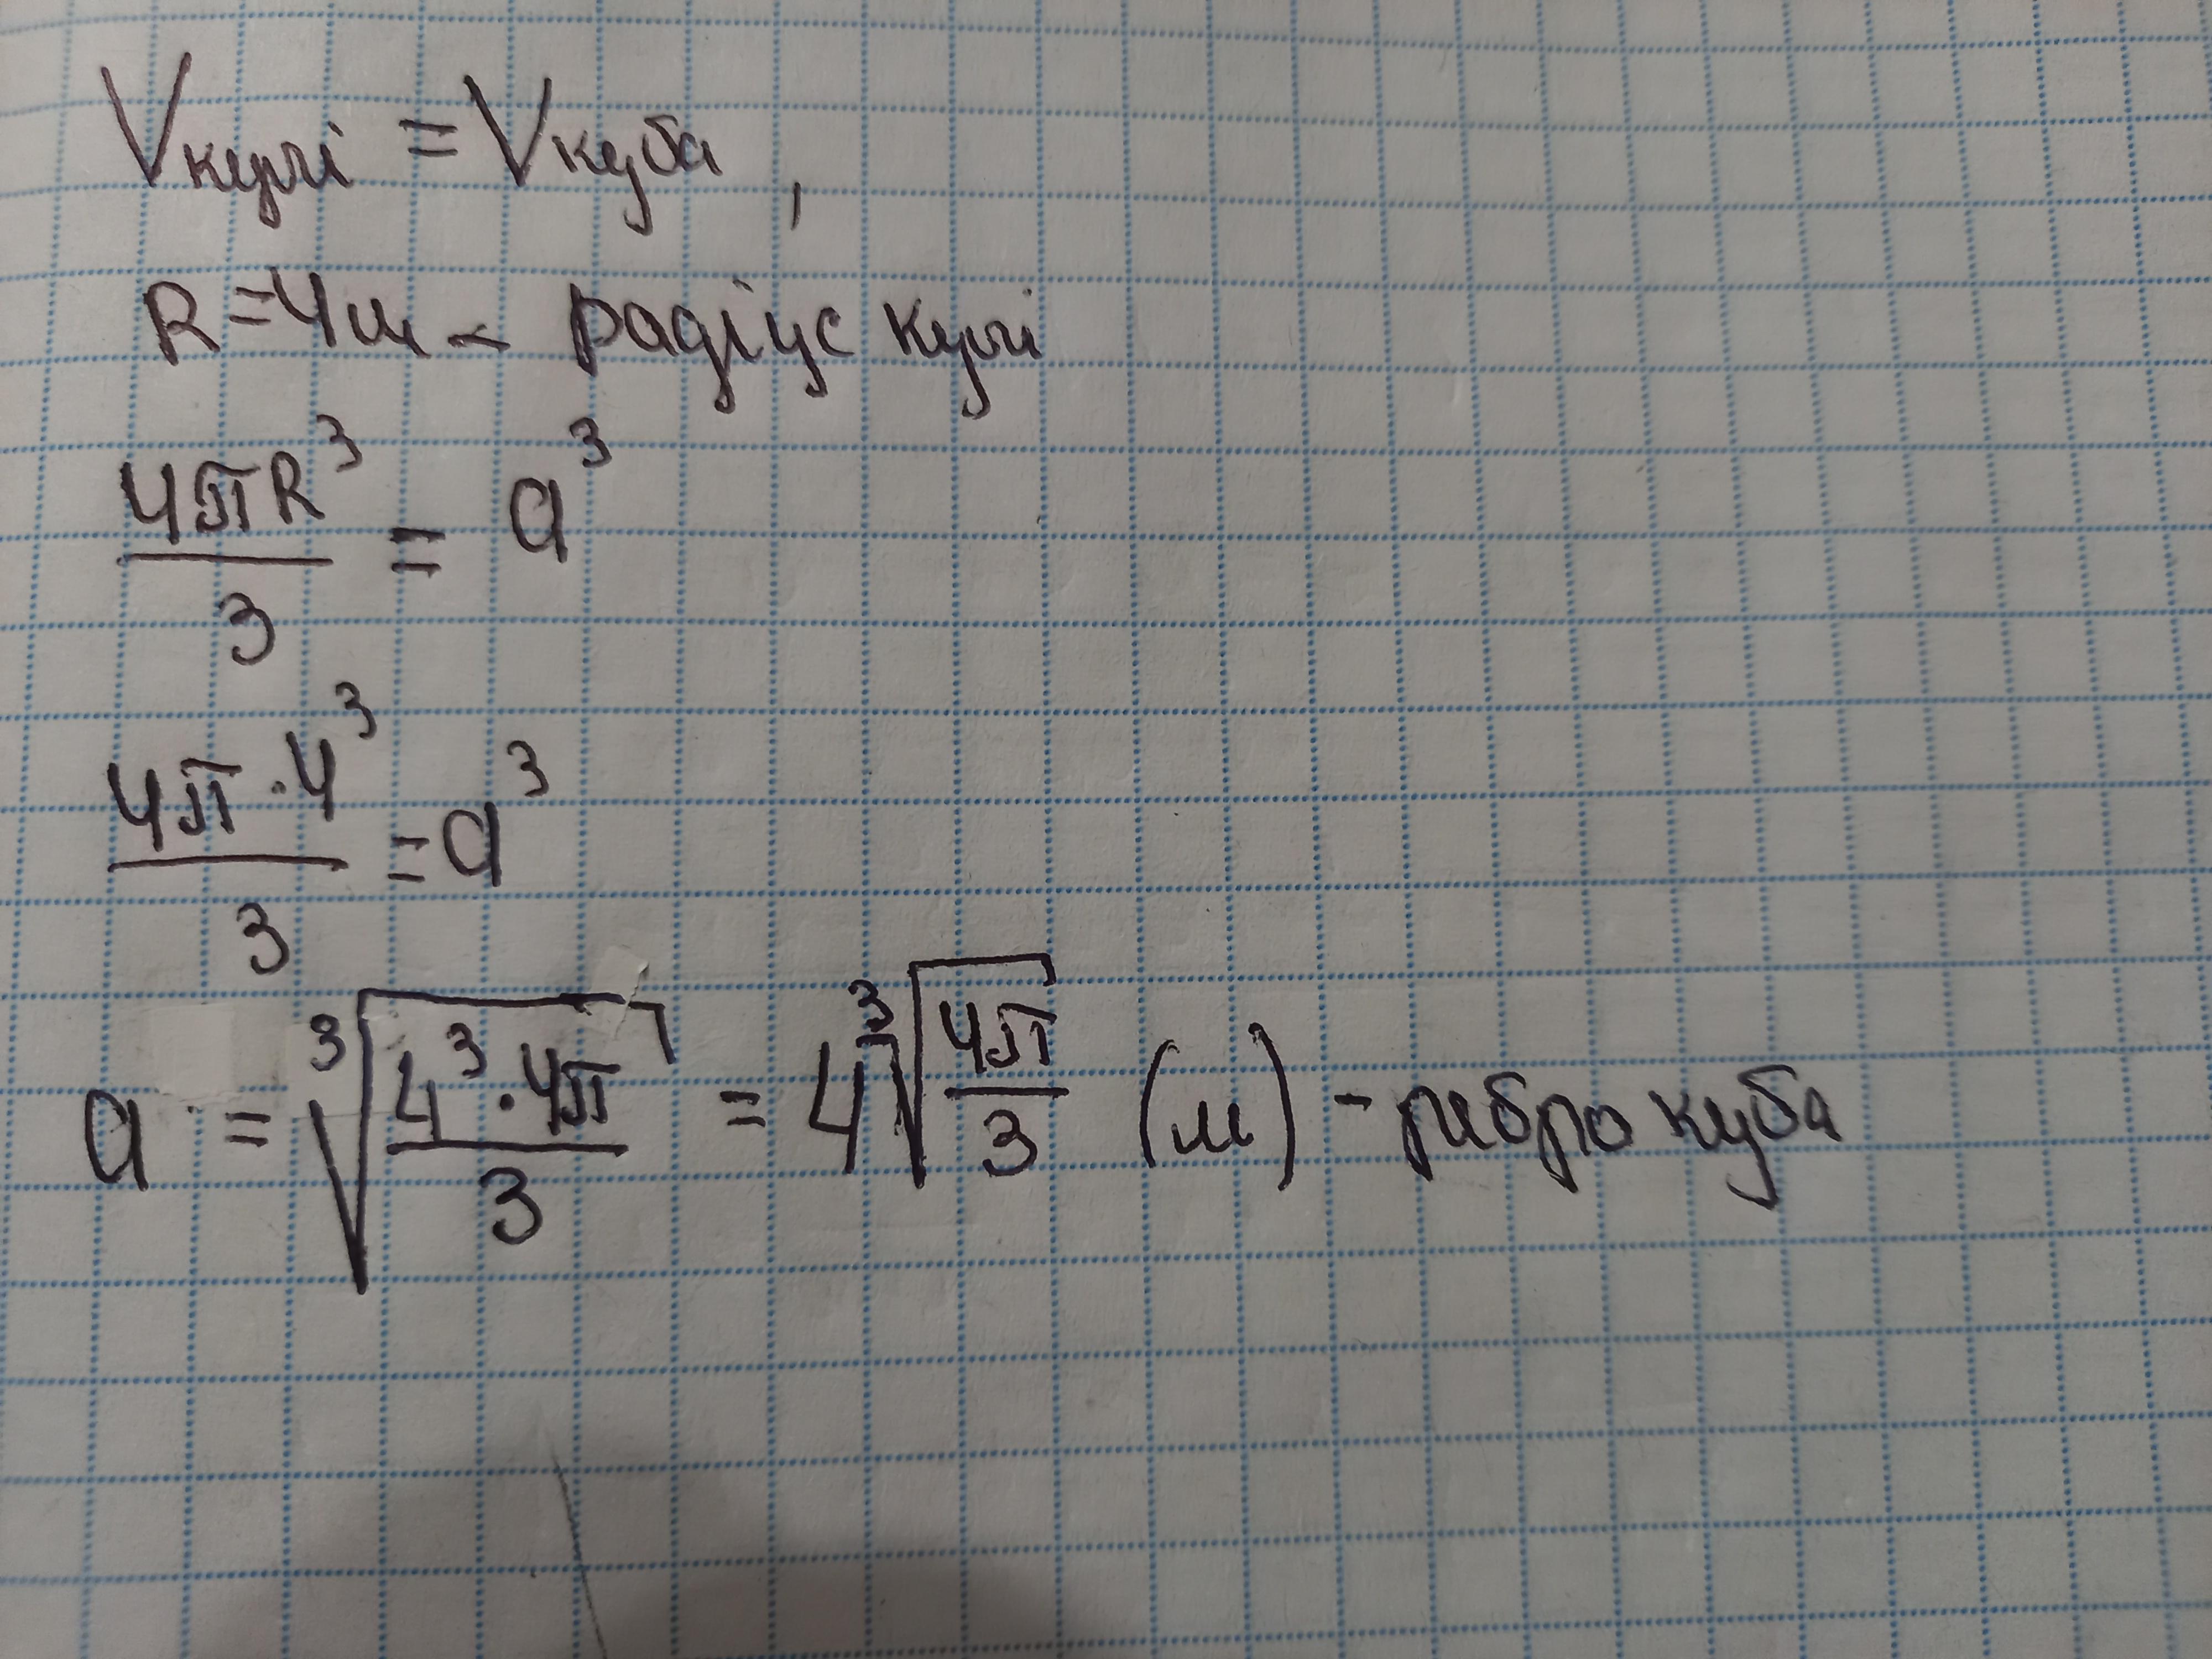 Vкулі = Vкуба ,
R = 4 м - радіус кулі
4πR³/3 = a³
4π·4³/3 = a³
a = ∛(4³·4π/3) = 4∛(4π/3) (м) - ребро куба